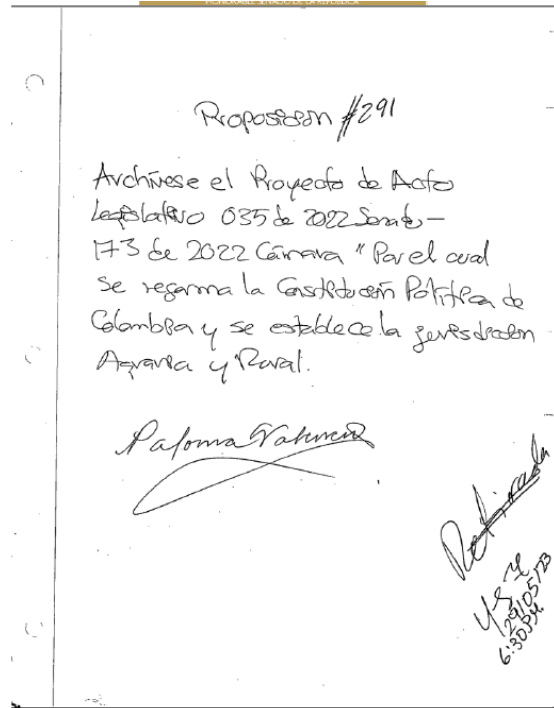 HONORABLE SENADO DE LA REPÚBLICA
Proposición #291
Archívese el Proyecto de Acto
Legislativo 035 de 2022 Senado -
173 de 2022 Cámara "Por el cual
se reforma la Constitución Política de
Colombia y se establece la jurisdicción
Agraria y Rural.
Paloma Valencia
Retirada
29/05/23
6:30PM.